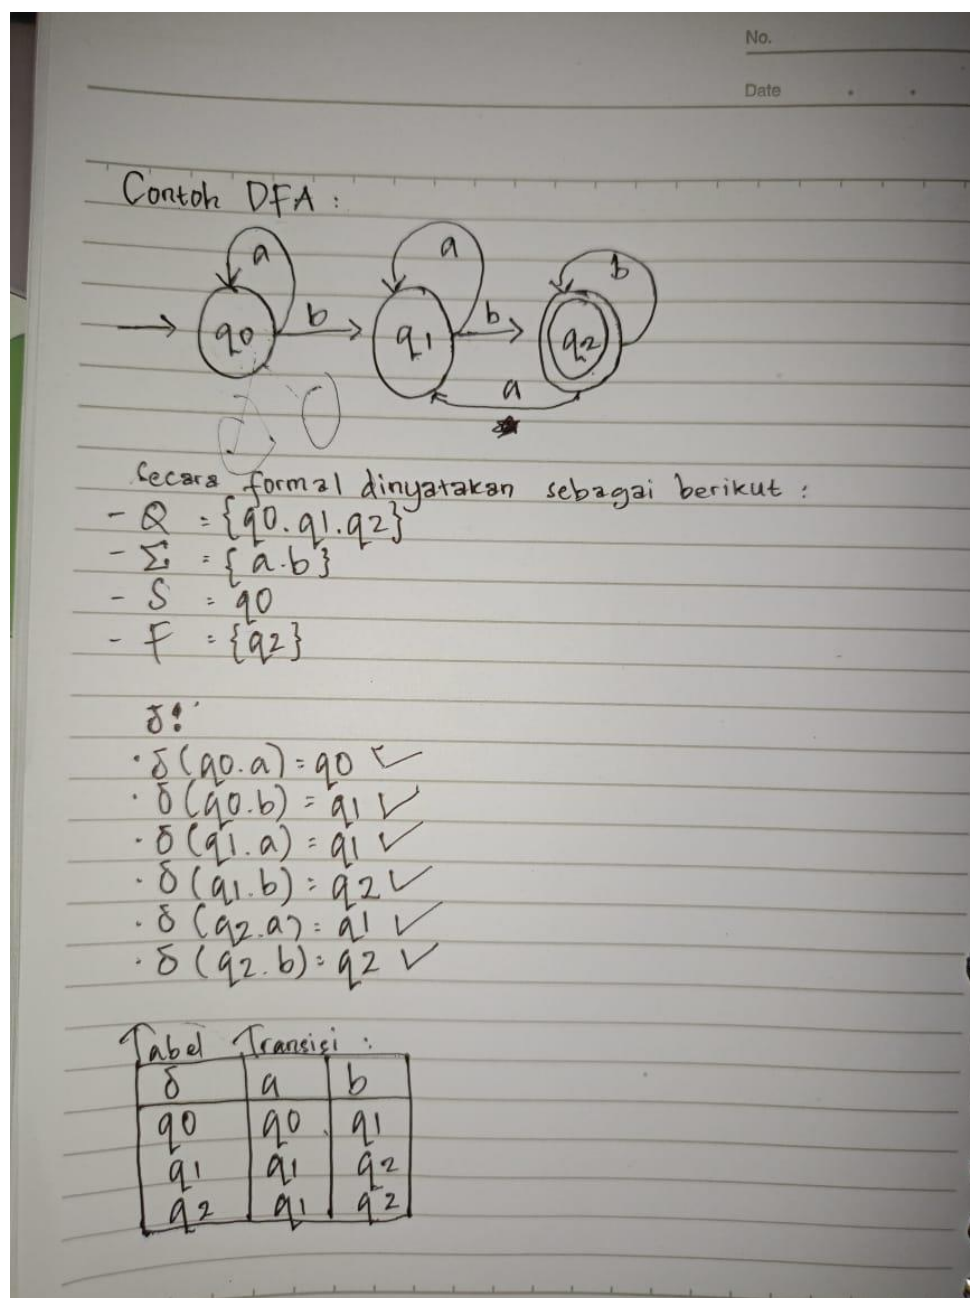 No.
Date
Contoh DFA :
a a b
q0 b q1 b q2
a
Secara formal dinyatakan sebagai berikut :
- Q = {q0.q1.q2}
- Σ = {a.b}
- S = q0
- F = {q2}
δ:
· δ(q0.a) = q0 ✓
· δ(q0.b) = q1 ✓
· δ(q1.a) = q1 ✓
· δ(q1.b) = q2 ✓
· δ(q2.a) = q1 ✓
· δ(q2.b) = q2 ✓
Tabel Transisi :
δ a b
q0 q0 q1
q1 q1 q2
q2 q1 q2